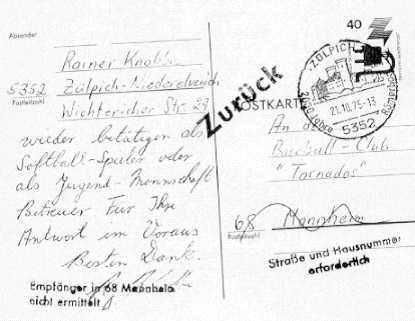 Absender
Rainer
5352 Zülpich-Niederelvenich
Postleitzahl
Wichtericher Str. 29
wieder betätigen als
Softball-Spieler oder
als Jugend-Mannschaft
Betreuer Für Ihre
Antwort im Voraus
Besten Dank.
Empfänger in 68 Mannheim
nicht ermittelt
Zurück
40
ZÜLPICH
2000 Jahre Römerstadt
21.10.75-13
5352
POSTKARTE
An den
Baseball-Club
"Tornados"
68 Mannheim
Postleitzahl
Straße und Hausnummer
erforderlich